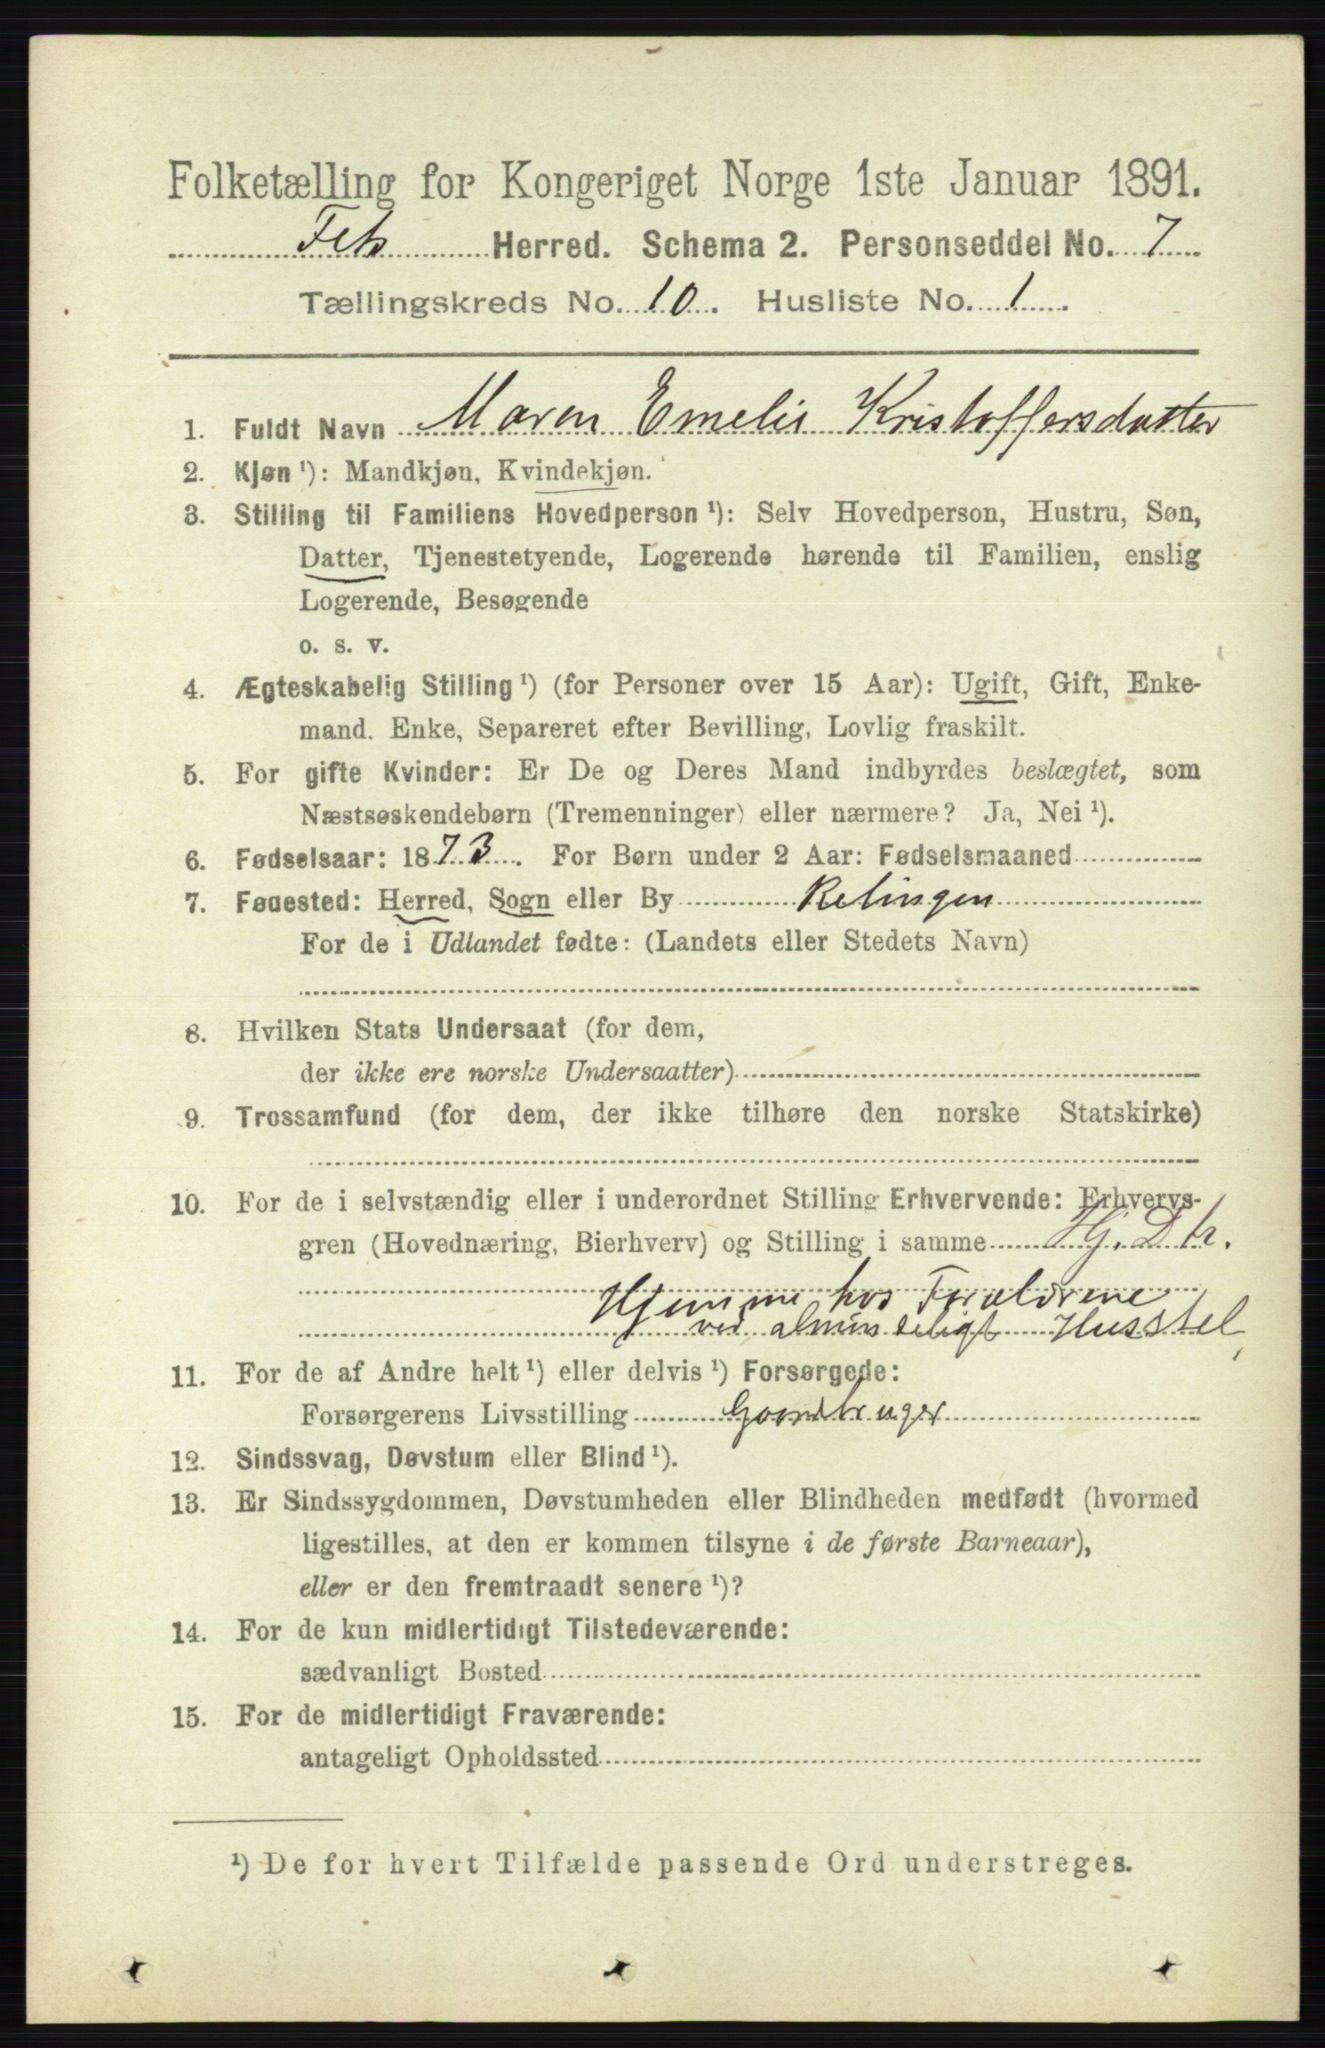 Folketælling for Kongeriget Norge 1ste Januar 1891.
Fets Herred. Schema 2. Personseddel No. 7
Tællingskreds No. 10. Husliste No. 1
1. Fuldt Navn Maren Emelie Kristoffersdatter
2. Kjøn ¹): Mandkjøn, Kvindekjøn.
3. Stilling til Familiens Hovedperson ¹): Selv Hovedperson, Hustru, Søn,
Datter, Tjenestetyende, Logerende hørende til Familien, enslig
Logerende, Besøgende
o. s. v.
4. Ægteskabelig Stilling ¹) (for Personer over 15 Aar): Ugift, Gift, Enke-
mand. Enke, Separeret efter Bevilling, Lovlig fraskilt.
5. For gifte Kvinder: Er De og Deres Mand indbyrdes beslægtet, som
Næstsøskendebørn (Tremenninger) eller nærmere? Ja, Nei ¹).
6. Fødselsaar: 1873. For Børn under 2 Aar: Fødselsmaaned
7. Fødested: Herred, Sogn eller By Relingen
For de i Udlandet fødte: (Landets eller Stedets Navn)
8. Hvilken Stats Undersaat (for dem,
der ikke ere norske Undersaatter)
9. Trossamfund (for dem, der ikke tilhøre den norske Statskirke)
10. For de i selvstændig eller i underordnet Stilling Erhvervende: Erhvervs-
gren (Hovednæring, Bierhverv) og Stilling i samme Hj. Dtr.
Hjemme hos Forældrene
ved almindeligt Husstel,
11. For de af Andre helt ¹) eller delvis ¹) Forsørgede:
Forsørgerens Livsstilling Gaardbruger
12. Sindssvag, Døvstum eller Blind ¹).
13. Er Sindssygdommen, Døvstumheden eller Blindheden medfødt (hvormed
ligestilles, at den er kommen tilsyne i de første Barneaar),
eller er den fremtraadt senere ¹)?
14. For de kun midlertidigt Tilstedeværende:
sædvanligt Bosted
15. For de midlertidigt Fraværende:
antageligt Opholdssted
¹) De for hvert Tilfælde passende Ord understreges.